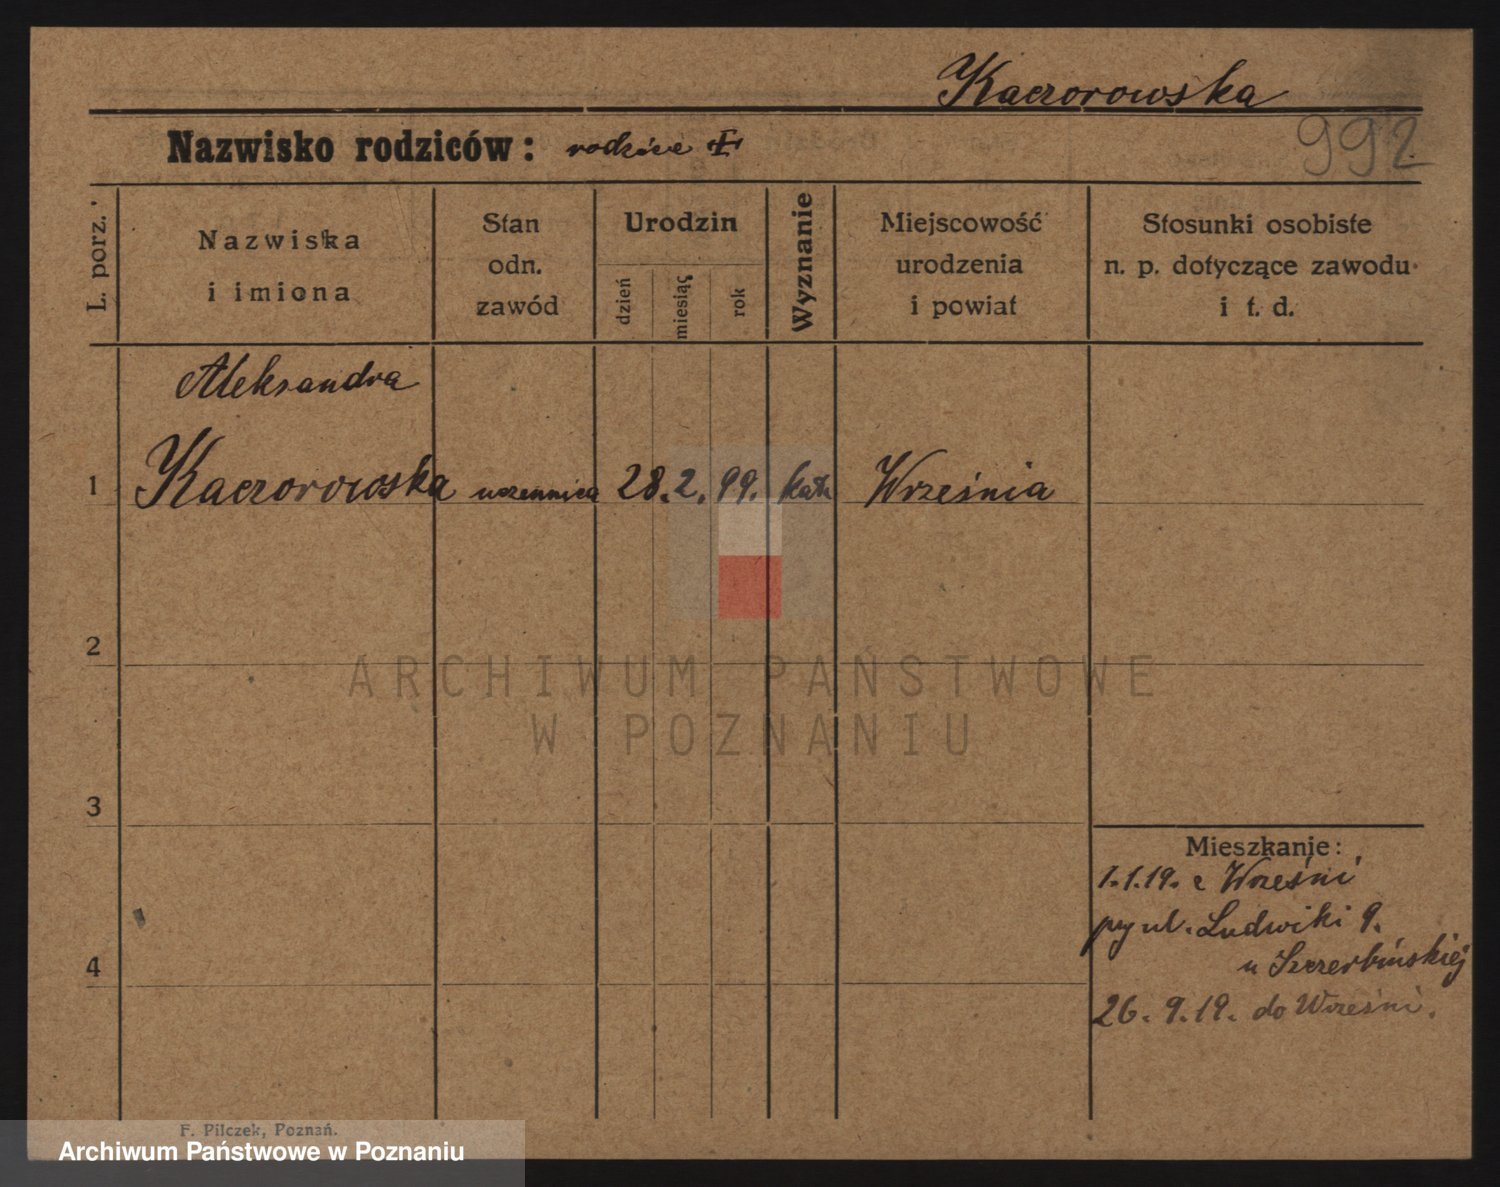 Kaczorowska
Nazwisko rodziców: rodzice ‡
992
L. porz.
Nazwiska
i imiona
Stan
odn.
zawód
Urodzin
dzień
miesiąc
rok
Wyznanie
Miejscowość
urodzenia
i powiat
Stosunki osobiste
n. p. dotyczące zawodu
i t. d.
Aleksandra
1 Kaczorowska uczennica 28. 2. 99. kath Września
2
ARCHIWUM PAŃSTWOWE
W POZNANIU
3
Mieszkanie:
1.1.19. z Wrześni
przy ul. Ludwiki 9.
u Szczerbińskiej
4
26. 9. 19. do Wrześni.
F. Pilczek, Poznań.
Archiwum Państwowe w Poznaniu